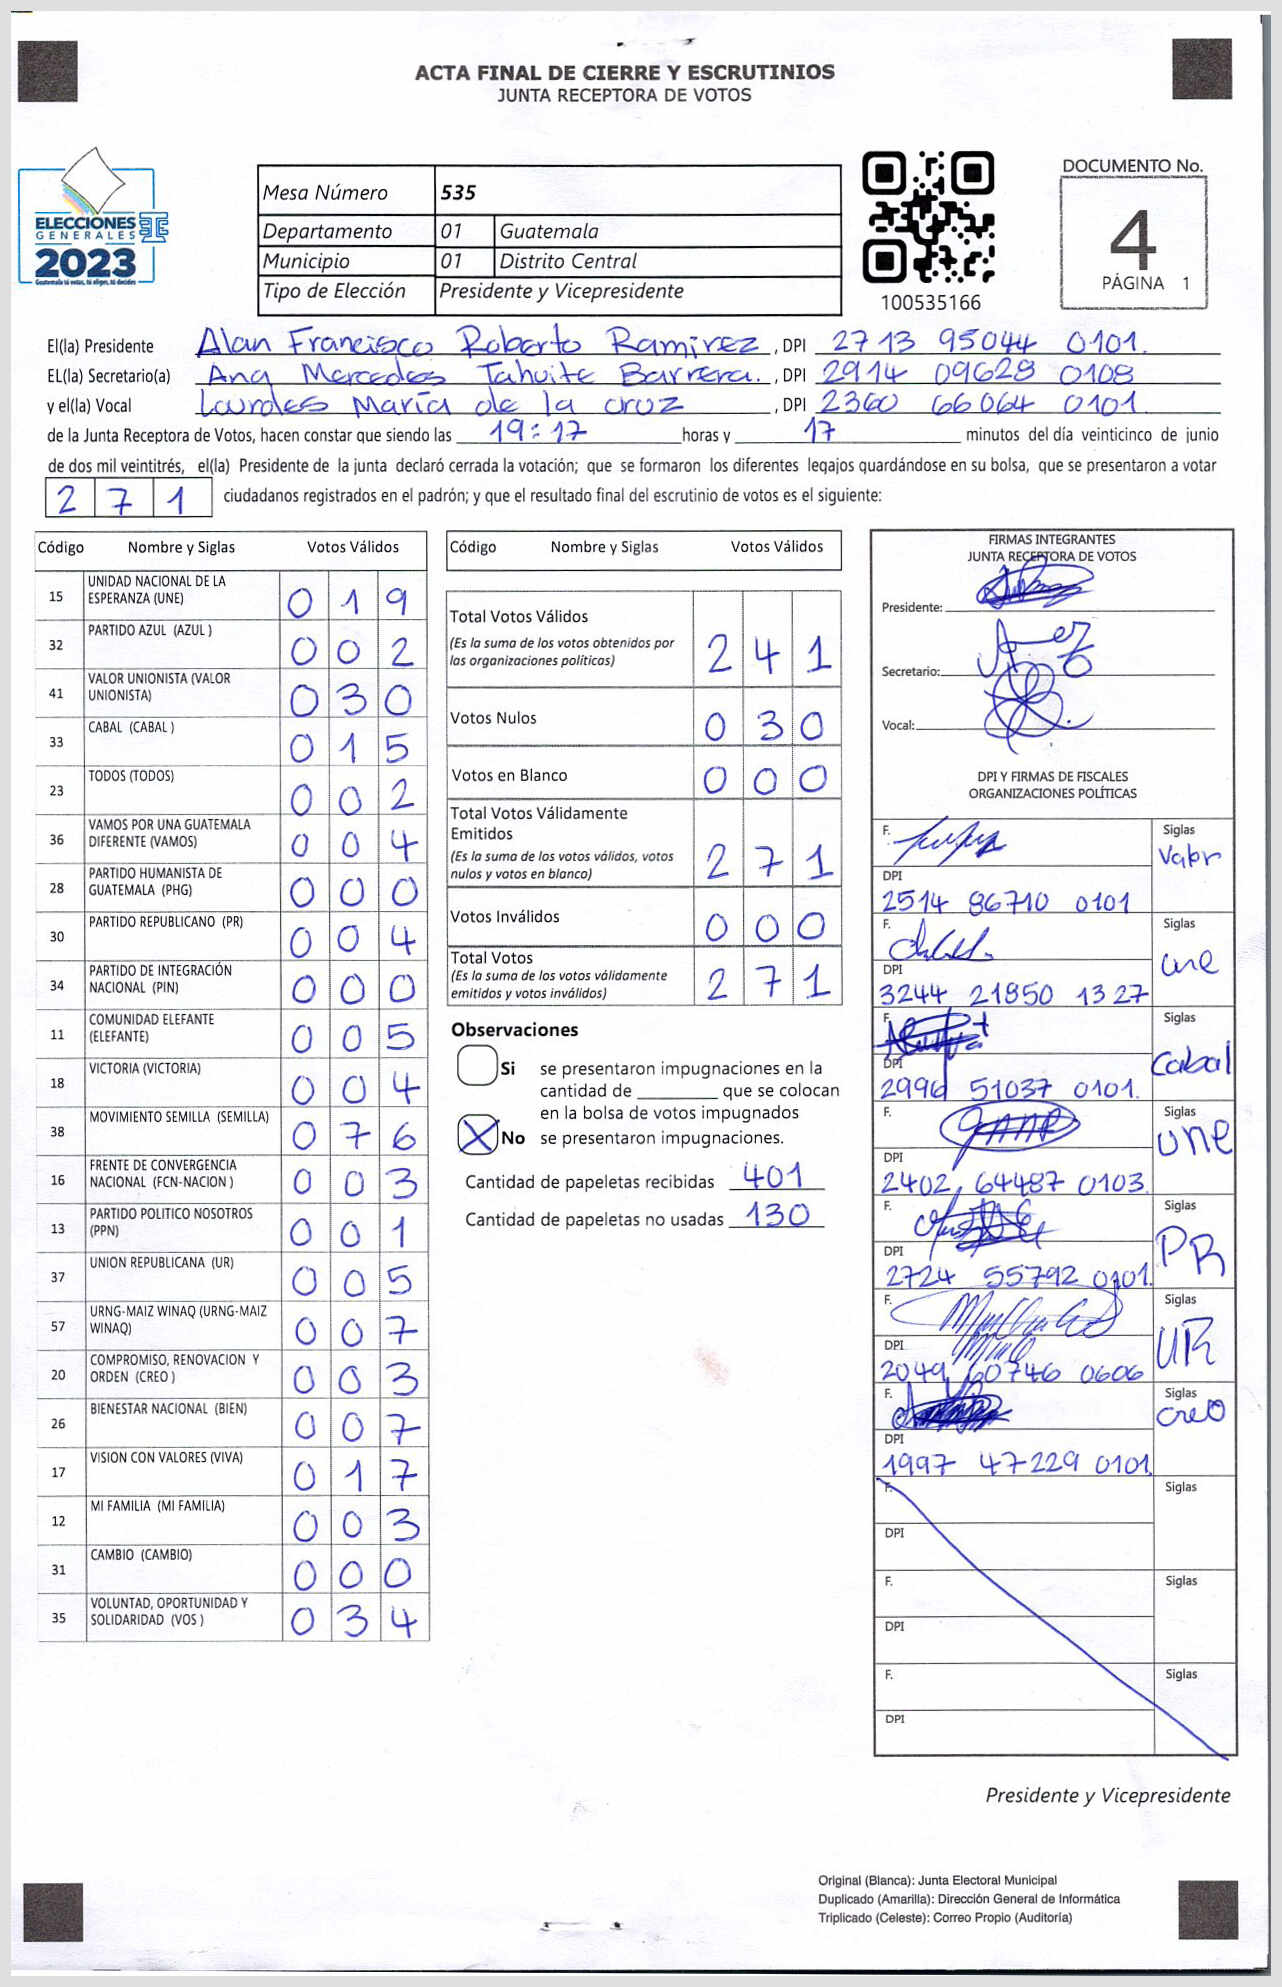 ACTA FINAL DE CIERRE Y ESCRUTINIOS
JUNTA RECEPTORA DE VOTOS
ELECCIONES
GENERALES
2023
Guatemala tú votas, tú eliges, tú decides
Mesa Número 535
Departamento 01 Guatemala
Municipio 01 Distrito Central
Tipo de Elección Presidente y Vicepresidente
100535166
DOCUMENTO No.
4
PÁGINA 1
El(la) Presidente Alan Francisco Roberto Ramirez, DPI 2713 95044 0101.
EL(la) Secretario(a) Ana Mercedes Tahuite Barrera., DPI 2914 09628 0108
y el(la) Vocal Lourdes María de la cruz, DPI 2360 66064 0101
de la Junta Receptora de Votos, hacen constar que siendo las 19:17 horas y 17 minutos del día veinticinco de junio
de dos mil veintitrés, el(la) Presidente de la junta declaró cerrada la votación; que se formaron los diferentes legajos guardándose en su bolsa, que se presentaron a votar
2 7 1 ciudadanos registrados en el padrón; y que el resultado final del escrutinio de votos es el siguiente:
Código Nombre y Siglas Votos Válidos
15 UNIDAD NACIONAL DE LA ESPERANZA (UNE) 0 1 9
32 PARTIDO AZUL (AZUL ) 0 0 2
41 VALOR UNIONISTA (VALOR UNIONISTA) 0 3 0
33 CABAL (CABAL ) 0 1 5
23 TODOS (TODOS) 0 0 2
36 VAMOS POR UNA GUATEMALA DIFERENTE (VAMOS) 0 0 4
28 PARTIDO HUMANISTA DE GUATEMALA (PHG) 0 0 0
30 PARTIDO REPUBLICANO (PR) 0 0 4
34 PARTIDO DE INTEGRACIÓN NACIONAL (PIN) 0 0 0
11 COMUNIDAD ELEFANTE (ELEFANTE) 0 0 5
18 VICTORIA (VICTORIA) 0 0 4
38 MOVIMIENTO SEMILLA (SEMILLA) 0 7 6
16 FRENTE DE CONVERGENCIA NACIONAL (FCN-NACION ) 0 0 3
13 PARTIDO POLITICO NOSOTROS (PPN) 0 0 1
37 UNION REPUBLICANA (UR) 0 0 5
57 URNG-MAIZ WINAQ (URNG-MAIZ WINAQ) 0 0 7
20 COMPROMISO, RENOVACION Y ORDEN (CREO ) 0 0 3
26 BIENESTAR NACIONAL (BIEN) 0 0 7
17 VISION CON VALORES (VIVA) 0 1 7
12 MI FAMILIA (MI FAMILIA) 0 0 3
31 CAMBIO (CAMBIO) 0 0 0
35 VOLUNTAD, OPORTUNIDAD Y SOLIDARIDAD (VOS ) 0 3 4
Código Nombre y Siglas Votos Válidos
Total Votos Válidos
(Es la suma de los votos obtenidos por las organizaciones políticas) 2 4 1
Votos Nulos 0 3 0
Votos en Blanco 0 0 0
Total Votos Válidamente Emitidos
(Es la suma de los votos válidos, votos nulos y votos en blanco) 2 7 1
Votos Inválidos 0 0 0
Total Votos
(Es la suma de los votos válidamente emitidos y votos inválidos) 2 7 1
Observaciones
Si se presentaron impugnaciones en la
cantidad de ________ que se colocan
en la bolsa de votos impugnados
No se presentaron impugnaciones.
Cantidad de papeletas recibidas 401
Cantidad de papeletas no usadas 130
FIRMAS INTEGRANTES
JUNTA RECEPTORA DE VOTOS
Presidente:
Secretario:
Vocal:
DPI Y FIRMAS DE FISCALES
ORGANIZACIONES POLÍTICAS
F. Siglas
Valor
DPI
2514 86710 0101
F. Siglas
une
DPI
3244 21850 1327
F. Siglas
Cabal
DPI
2996 51037 0101.
F. Siglas
une
DPI
2402 64487 0103
F. Siglas
PR
DPI
2724 55792 0101.
F. Siglas
UR
DPI
2049 60746 0606
F. Siglas
creo
DPI
1997 47229 0101
F. Siglas
DPI
F. Siglas
DPI
F. Siglas
DPI
Presidente y Vicepresidente
Original (Blanca): Junta Electoral Municipal
Duplicado (Amarilla): Dirección General de Informática
Triplicado (Celeste): Correo Propio (Auditoría)